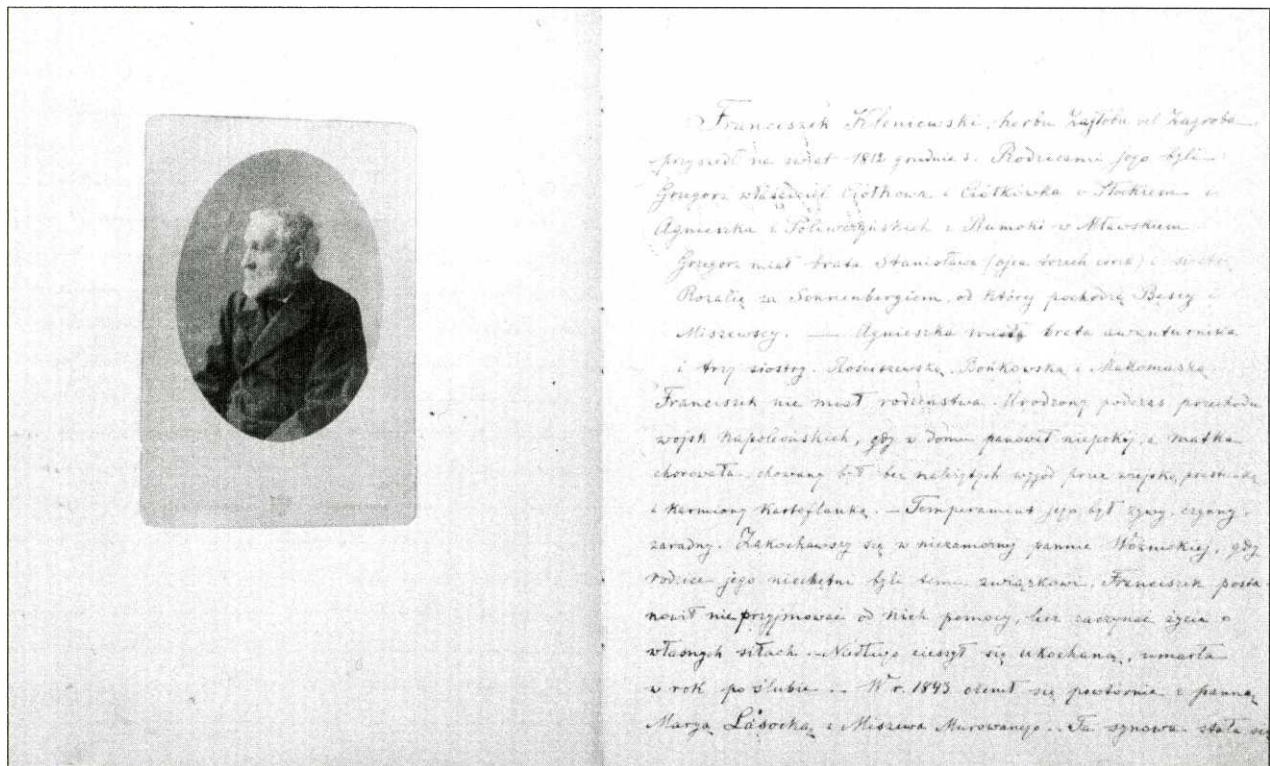 Franciszek Kleniewski, herbu Zagłoba vel Zagroba
przyszedł na świat 1812 grudnia 3. Rodzicami jego byli
Grzegorz właściciel Ciółkowa i Ciółkówka w Płockiem i
Agnieszka z z Rumoki w Mławskiem
Grzegorz miał brata Stanisława (ojca trzech córek) i siostrę
Rozalię za Sonnenbergiem, od który pochodzą Bęscy i
Miszewscy. — Agnieszka miała brata awanturnika
i trzy siostry. Rościszewską, Bońkowską i Makomaską
Franciszek nie miał rodzeństwa. Urodzony podczas przechodu
wojsk Napoleońskich, gdy w domu panował niepokój, a matka
chorowała, chowany był bez należytych wygód przez wiejską
i karmiony kartoflanką. — Temperament jego był żywy, czynny,
zaradny. Zakochawszy się w niezamożnej pannie Woźnickiej, gdy
rodzice jego niechętni byli temu związkowi, Franciszek posta
nowił nie przyjmować od nich pomocy, lecz zaczynać życie o
własnych siłach. — Niedługo cieszył się ukochaną, umarła
w rok po ślubie. — W r. 1843 ożenił się powtórnie z panną
Maryą Lasocką z Miszewa Murowanego. — Ta synowa stała się